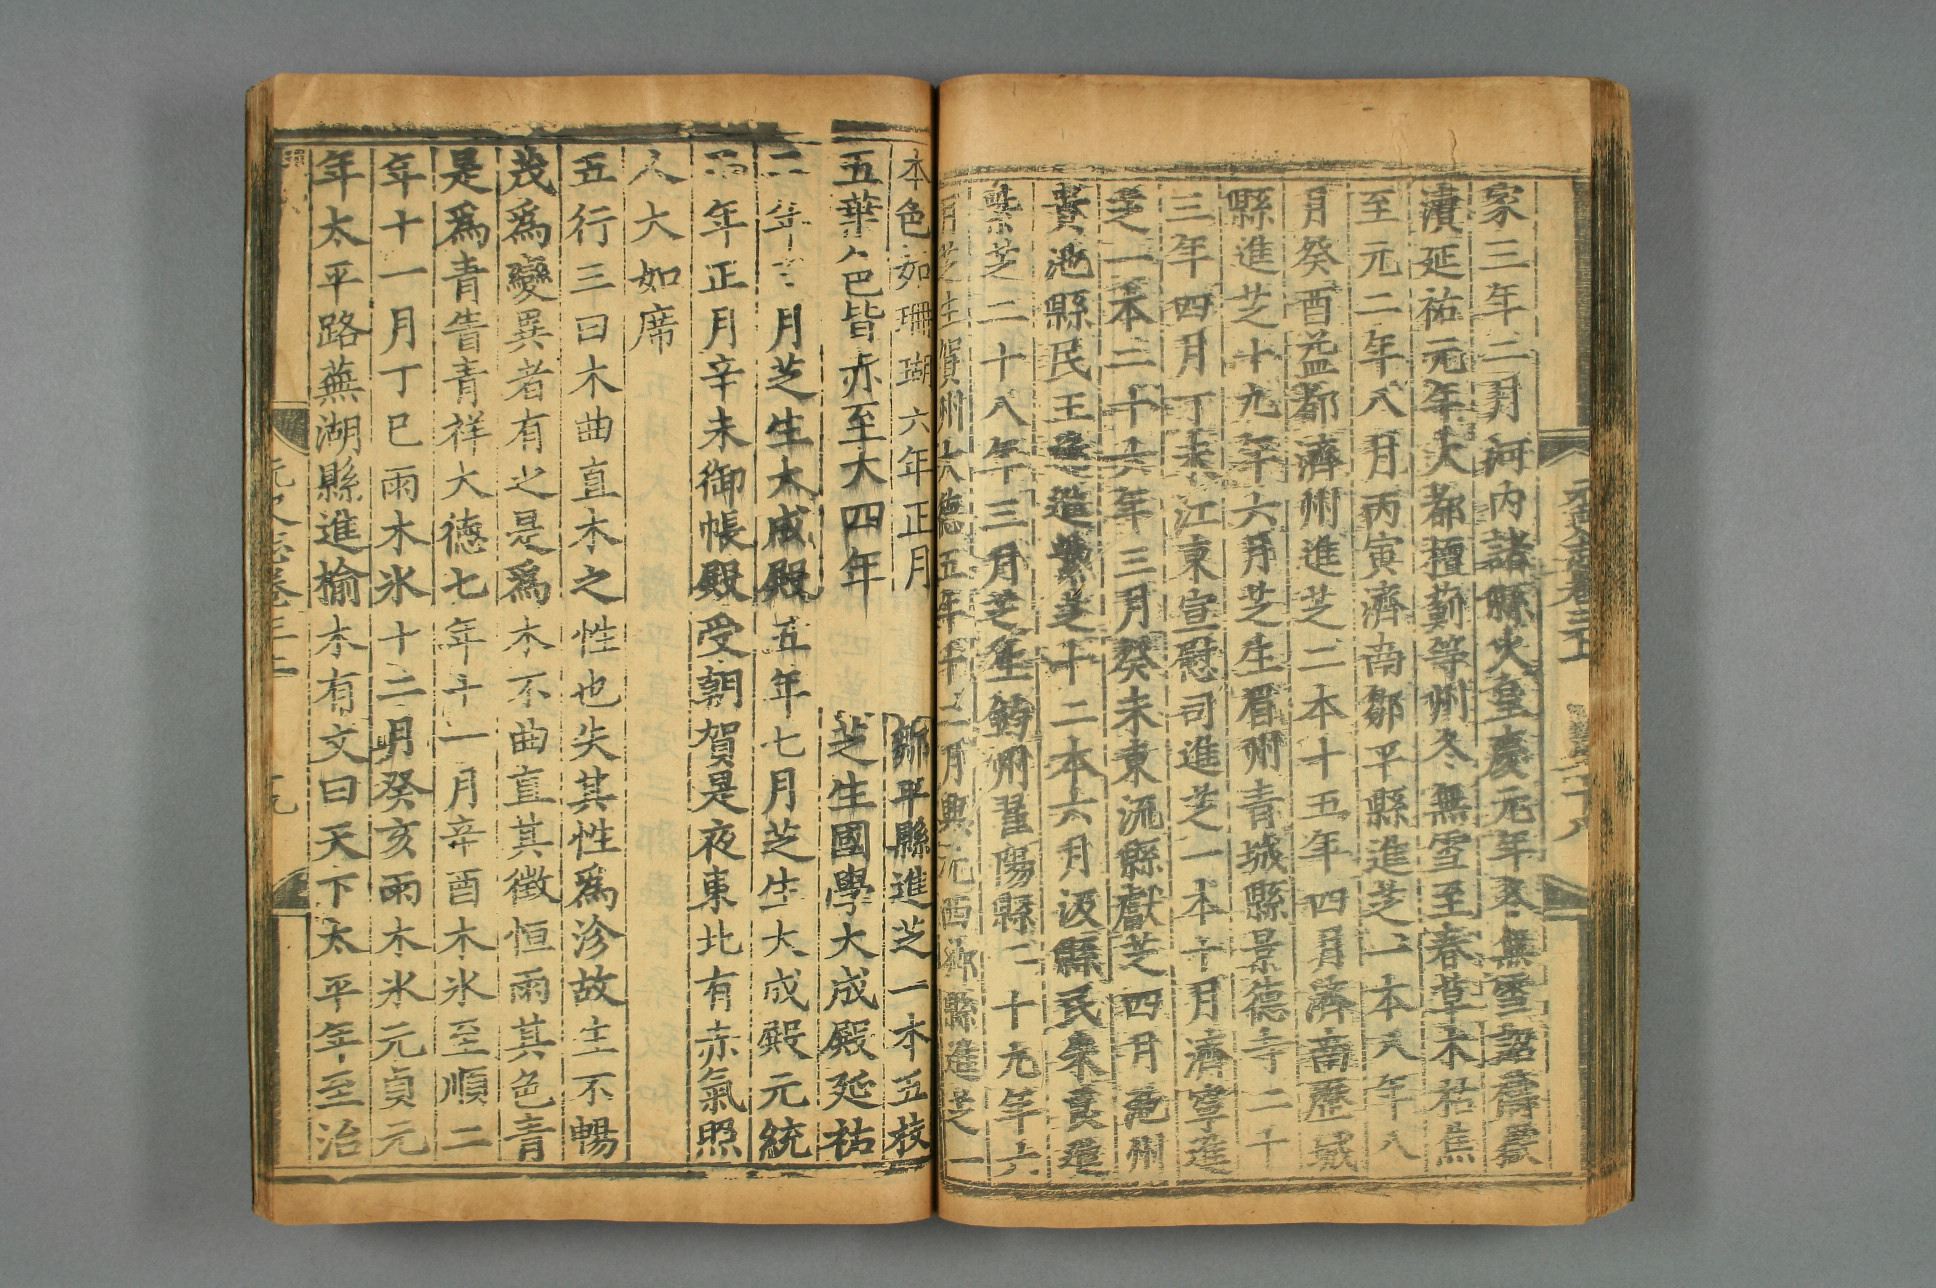 家三年二月河内諸縣火皇慶元年冬無雪詔禱嶽
瀆延祐元年大都檀薊等州冬無雪至春草木枯焦
至元二年八月丙寅濟南鄒平縣進芝二本八年八
月癸酉益都濟州進芝二本十五年四月濟南歷城
縣進芝十九年六月芝生眉州青城縣景德寺二十
三年四月丁未江東宣慰司進芝一本十月濟寧進
芝一本二十六年三月癸未東流縣獻芝四月池州
貴池縣民王遣進紫芝十二本六月汲縣民朱良進
紫芝二十八年三月芝生鈞州陽縣二十九年六
月芝生賀州大德五年十二月興元西鄉縣進芝一
本色如珊瑚六年正月 鄒平縣進芝一本五枝
五華色皆赤至大四年 芝生國學大成殿延祐
二年三月芝生大成殿五年七月芝生大成殿元統
年正月辛未御帳殿受朝賀是夜東北有赤氣照
人大如席
五行三曰木曲直木之性也失其性爲沴故生不暢
茂爲變異者有之是爲木不曲直其徵恒雨其色青
是爲青眚青祥大德七年十一月辛酉木氷至順二
年十一月丁巳雨木氷十二月癸亥雨木氷元貞元
年太平路蕪湖縣進榆木有文曰天下太平年至治